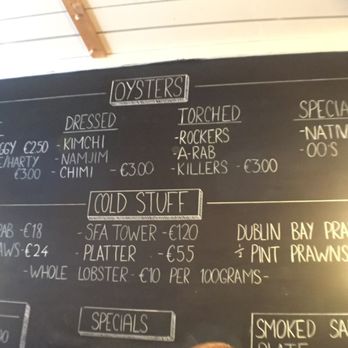 OYSTERS
DRESSED TORCHED SPECIA
GGY €2.50 - KIMCHI - ROCKERS - NATIV
E/HARTY - NAMJIM - A-RAB - OO'S
€3.00 - CHIMI - €3.00 - KILLERS - €3.00
COLD STUFF
AB - €18 - SFA TOWER - €120 DUBLIN BAY PRA
AWS - €24 - PLATTER - €55 ½ PINT PRAWNS
- WHOLE LOBSTER - €10 PER 100GRAMS -
SPECIALS SMOKED SA
PLATE